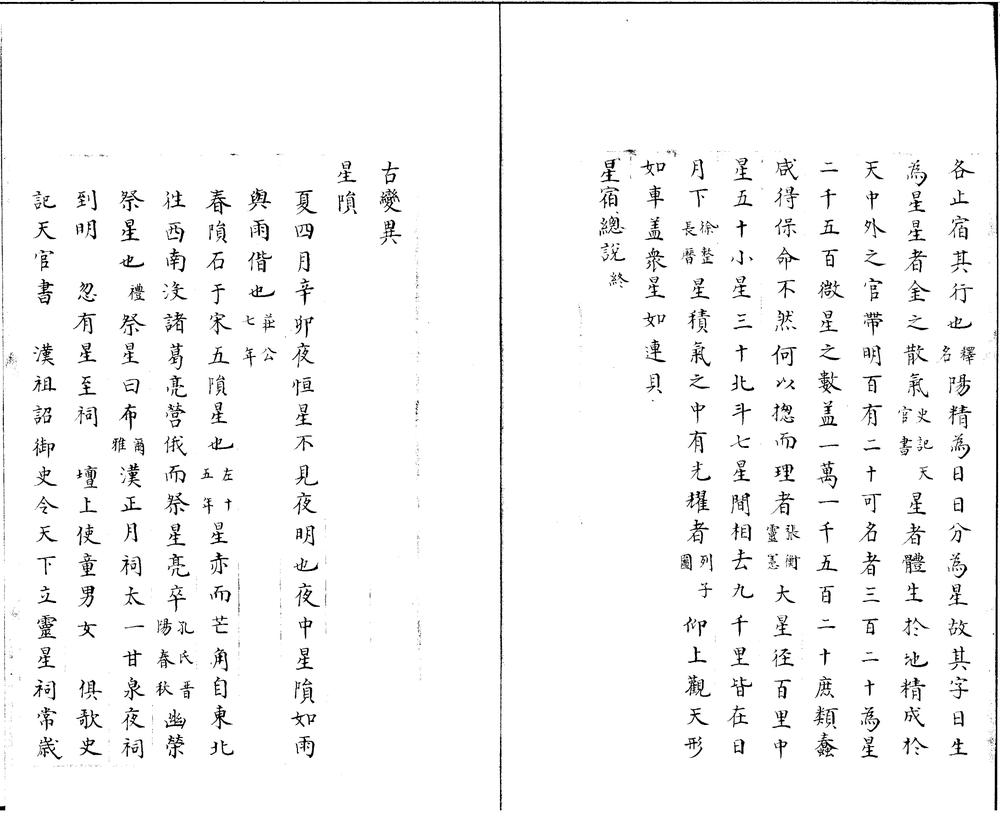 各止宿其行也釋名陽精為日日分為星故其字日生
為星星者金之散氣史記天官書星者體生於地精成於
天中外之官帶明百有二十可名者三百二十為星
二千五百微星之數蓋一萬一千五百二十庶類蠢
咸得保命不然何以揔而理者張衡靈憲大星径百里中
星五十小星三十北斗七星間相去九千里皆在日
月下徐整長曆星積氣之中有光耀者列子圖仰上觀天形
如車盖衆星如連貝
星宿總説終
古變異
星隕
夏四月辛卯夜恒星不見夜明也夜中星隕如雨
與雨偕也莊公七年
春隕石于宋五隕星也左十五年星赤而芒角自東北
徃西南没諸葛亮營俄而祭星亮卒孔氏晋陽春秋幽禜
祭星也禮祭星曰布爾雅漢正月祠太一甘泉夜祠
到明 忽有星至祠 壇上使童男女 俱歌史
記天官書 漢祖詔御史令天下立靈星祠常歳